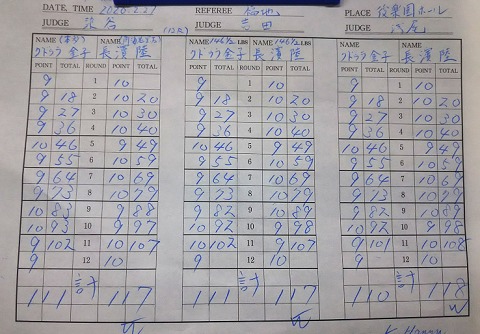 DATE, TIME 2020.2.27 REFEREE 福地 PLACE 後楽園ホール
JUDGE 染谷 JUDGE 吉田 JUDGE
NAME NAME NAME 146½ LBS NAME 146½ LBS NAME NAME
クドゥラ金子 長濱 陸 クドゥラ金子 長濱 陸 クドゥラ金子 長濱 陸
POINT TOTAL ROUND POINT TOTAL POINT TOTAL ROUND POINT TOTAL POINT TOTAL ROUND POINT TOTAL
9 1 10 9 1 10 9 1 10
9 18 2 10 20 9 18 2 10 20 9 18 2 10 20
9 27 3 10 30 9 27 3 10 30 9 27 3 10 30
9 36 4 10 40 9 36 4 10 40 9 36 4 10 40
10 46 5 9 49 10 46 5 9 49 10 46 5 9 49
9 55 6 10 59 9 55 6 10 59 9 55 6 10 59
9 64 7 10 69 9 64 7 10 69 9 64 7 10 69
9 73 8 10 79 9 73 8 10 79 9 73 8 10 79
10 83 9 9 88 9 82 9 10 89 9 82 9 10 89
10 93 10 9 97 10 92 10 9 98 10 92 10 9 98
9 102 11 10 107 10 102 11 9 107 9 101 11 10 108
9 12 10 9 12 10 9 12 10
計 計 計
111 117 111 117 110 118
W W W